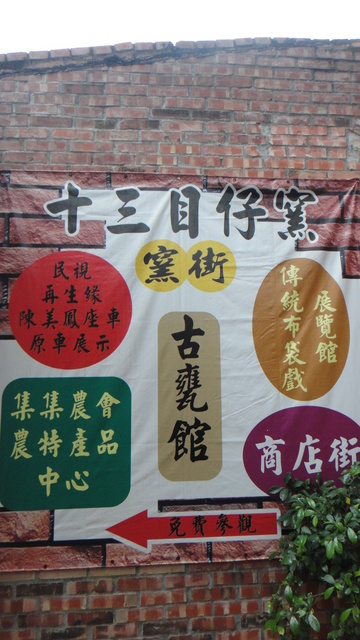 十三目仔窯
窯街
民視
再生緣
陳美鳳座車
原車展示
傳統布袋戲
展覽館
古甕館
集集農會
農特產品
中心
商店街
免費參觀